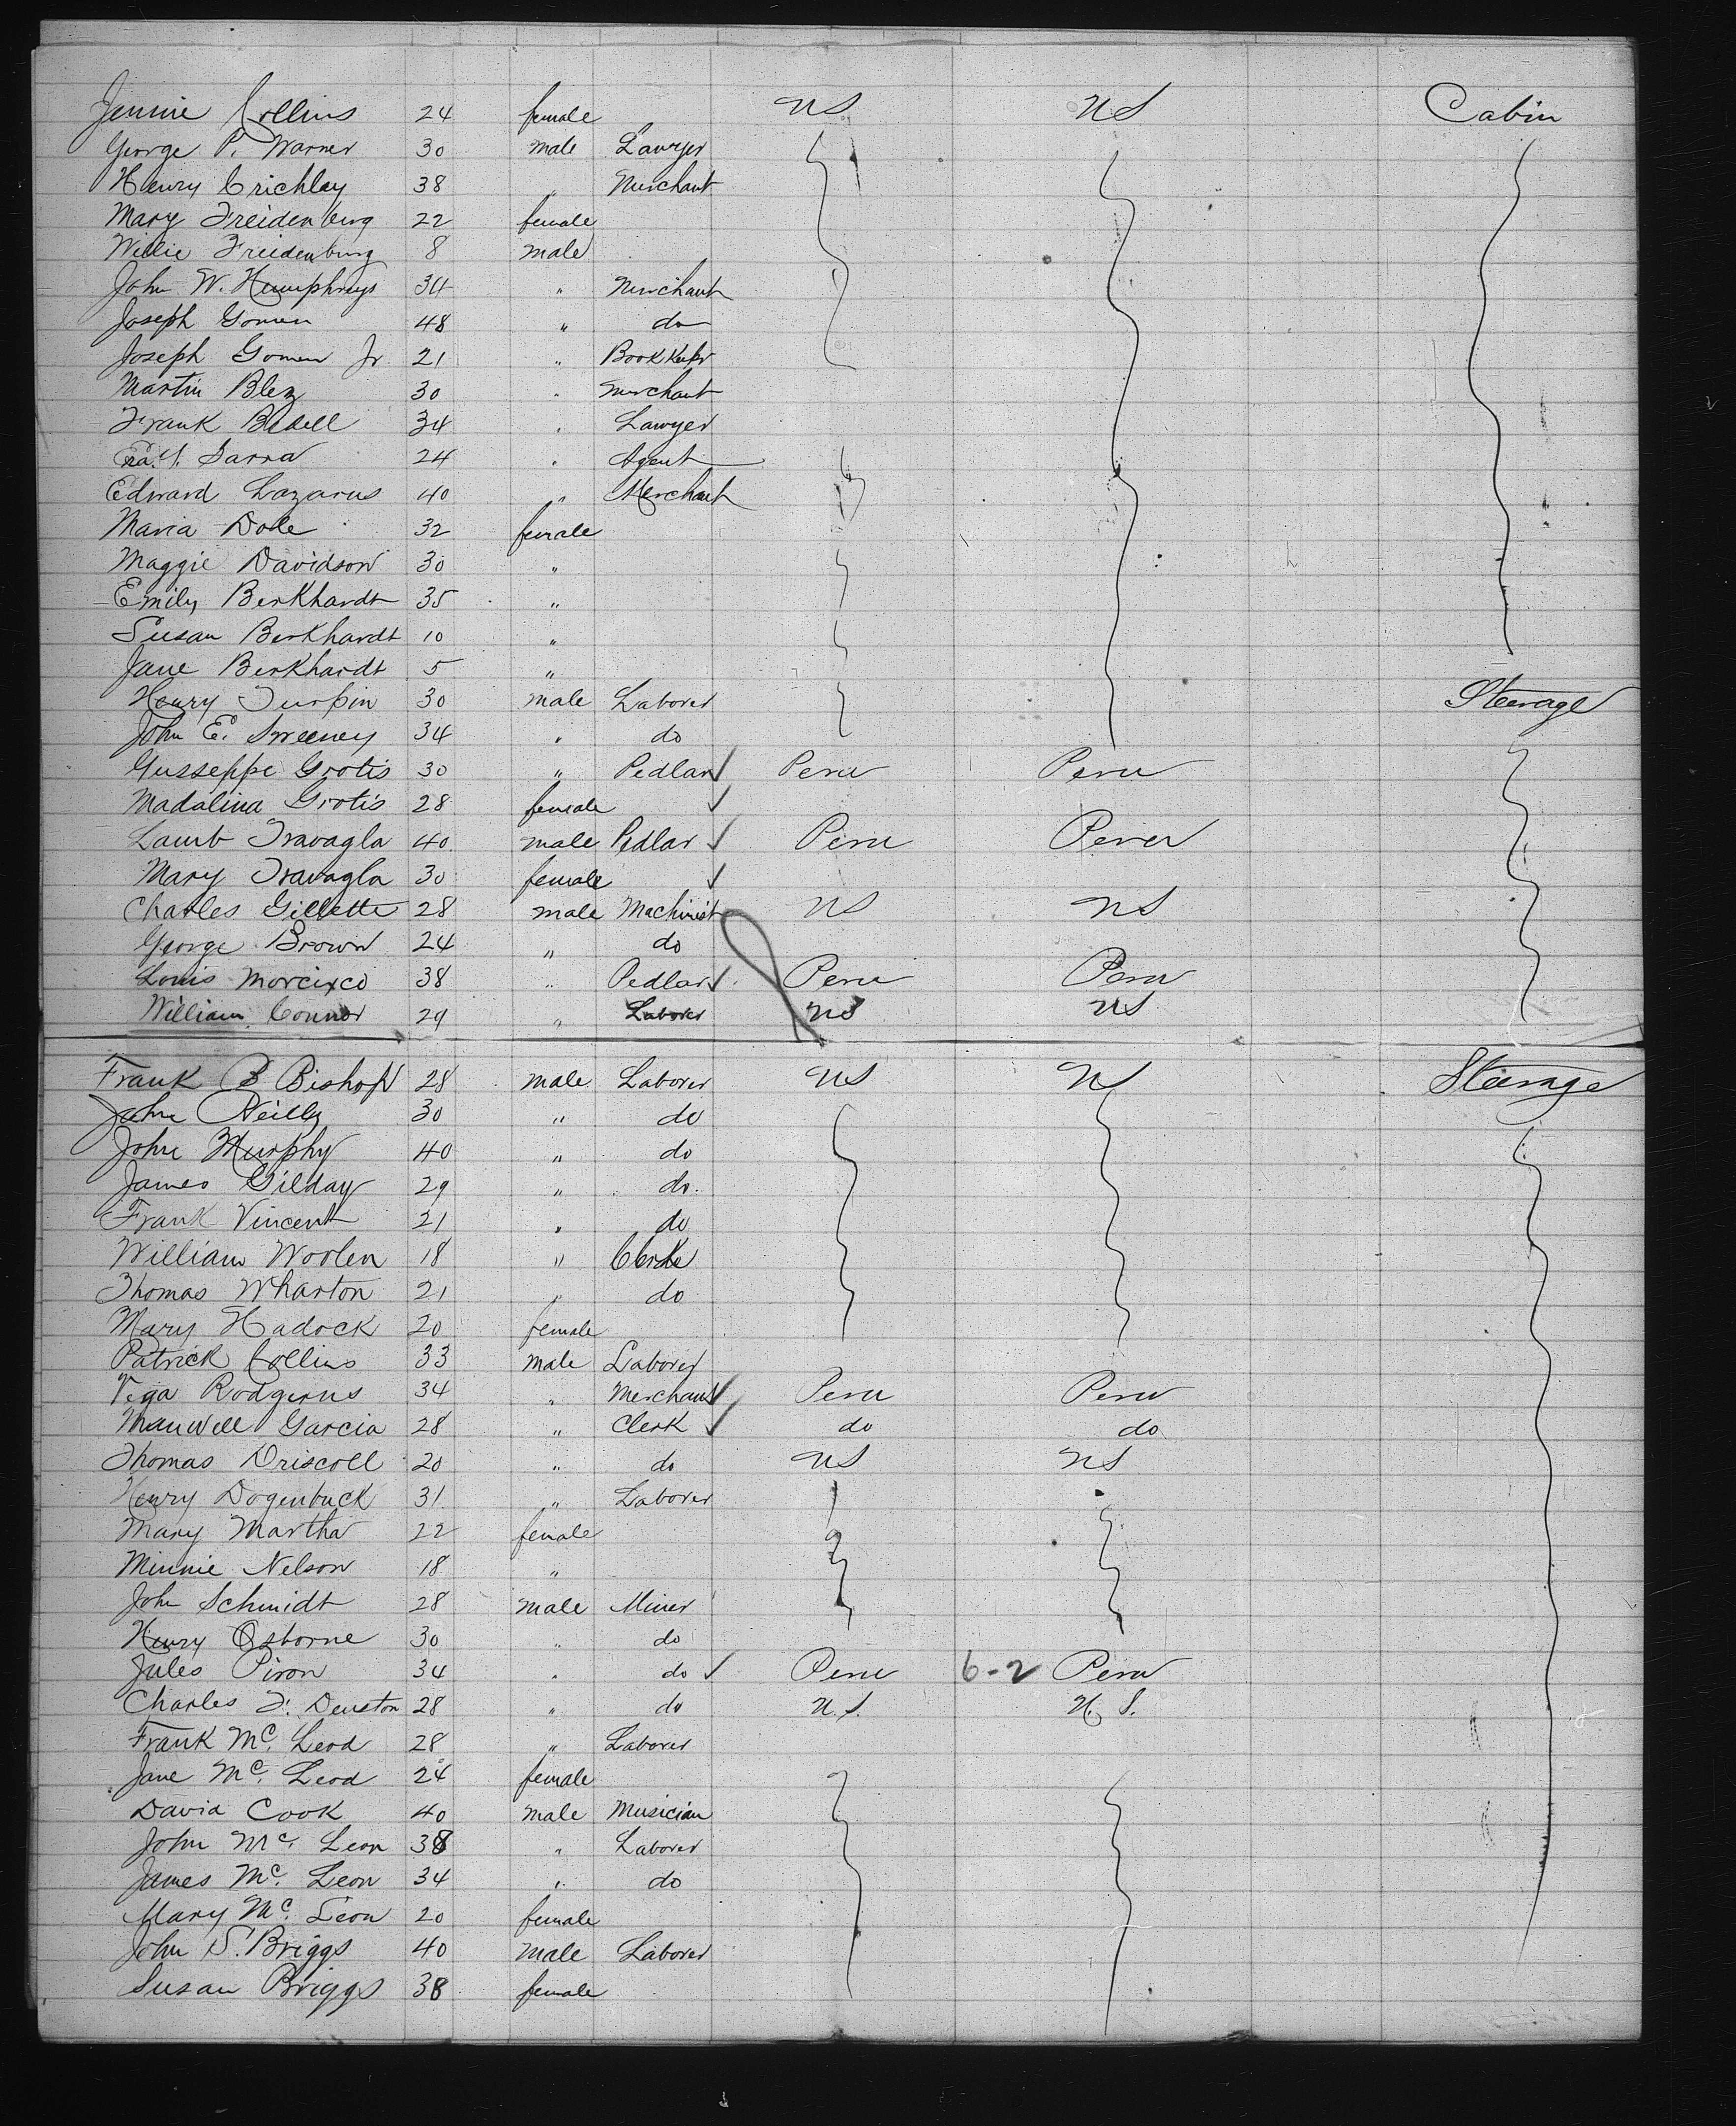 Jennie Collins 24 female US US Cabin
George P. Warner 30 male Lawyer
Henry Crichley 38 " Merchant
Mary Freidenburg 22 female
Willie Freidenburg 8 male
John W. Humphreys 34 " Merchant
Joseph Gomen 48 " do
Joseph Gomen Jr. 21 " Bookkeepr
Martin Blez 30 " Merchant
Frank Bedell 34 " Lawyer
Sarra 24 " Agent
Edward Lazarus 40 " Merchant
Maria Dole 32 female
Maggie Davidson 30 "
Emily Berkhardt 35 "
Susan Berkhardt 10 "
Jane Berkhardt 5 "
Henry Turpin 30 male Laborer Steerage
John E. Sweeney 34 " do
Gusseppe Grotis 30 " Pedlar ✓ Peru Peru
Madalina Grotis 28 female ✓
Lamb Travagla 40 male Pedlar ✓ Peru Peru
Mary Travagla 30 female ✓
Charles Gillette 28 male Machinist US US
George Brown 24 " do
Louis Morcixco 38 " Pedlar ✓ Peru Peru
William Connor 29 " Laborer US US
Frank B Bishop 28 male Laborer US US Steerage
John Reilly 30 " do
John Murphy 40 " do
James Gilday 29 " do.
Frank Vincent 21 " do
William Woolen 18 " Clerk
Thomas Wharton 21 " do
Mary Hadock 20 female
Patrick Collins 33 male Laborer
Vega Rodgerus 34 " Merchant ✓ Peru Peru
Manwell Garcia 28 " Clerk ✓ do do
Thomas Driscoll 20 " do US US
Henry Dogenbuck 31 " Laborer
Mary Martha 22 female
Minnie Nelson 18 "
John Schmidt 28 male Miner
Henry Osborne 30 " do
Jules Piron 34 " do ✓ Peru 6-2 Peru
Charles F. Deuston 28 " do U.S. U.S.
Frank Mc. Leod 28 " Laborer
Jane Mc. Leod 24 female
David Cook 40 male Musician
John Mc. Leon 38 " Laborer
James Mc. Leon 34 " do
Mary Mc. Leon 20 female
John S. Briggs 40 male Laborer
Susan Briggs 38 female